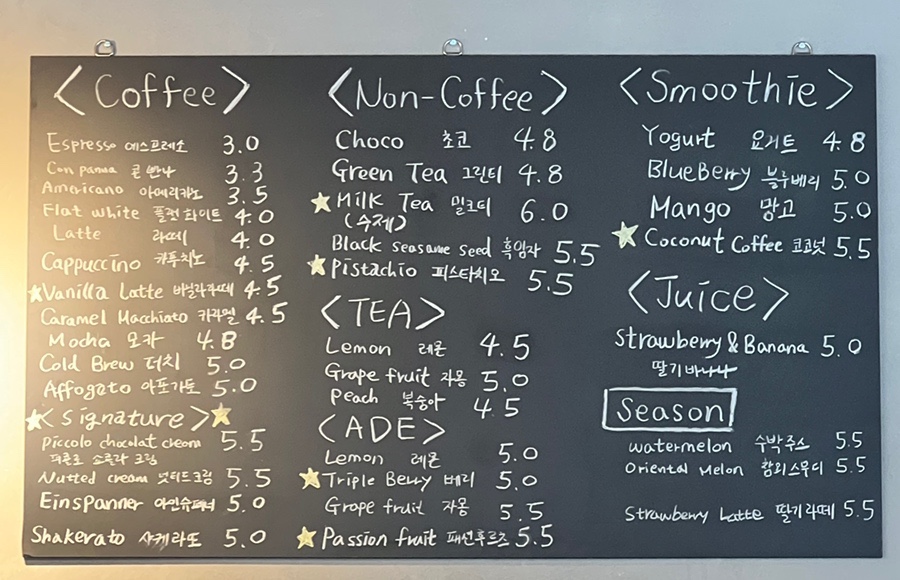 <Coffee>
Espresso 에스프레소 3.0
Con panna 콘 반나 3.3
Americano 아메리카노 3.5
Flat white 플랫 화이트 4.0
Latte 라떼 4.0
Cappuccino 카푸치노 4.5
Vanilla Latte 바닐라라떼 4.5
Caramel Macchiato 카라멜 4.5
Mocha 모카 4.8
Cold Brew 더치 5.0
Affogato 아포가토 5.0
<Signature>
Piccolo chocolat cream 5.5
피콜로 쇼콜라 크림
Nutted cream 넛티드크림 5.5
Einspanner 아인슈페너 5.0
Shakerato 샤케라또 5.0
<Non-Coffee>
Choco 초코 4.8
Green Tea 그린티 4.8
Milk Tea 밀크티 6.0
(수제)
Black seasame seed 흑임자 5.5
Pistachio 피스타치오 5.5
<TEA>
Lemon 레몬 4.5
Grape fruit 자몽 5.0
Peach 복숭아 4.5
<ADE>
Lemon 레몬 5.0
Triple Berry 베리 5.0
Grape fruit 자몽 5.5
Passion fruit 패션후르츠 5.5
<Smoothie>
Yogurt 요거트 4.8
BlueBerry 블루베리 5.0
Mango 망고 5.0
Coconut Coffee 코코넛 5.5
<Juice>
Strawberry & Banana 5.0
딸기바나나
Season
watermelon 수박주스 5.5
Oriental Melon 참외스무디 5.5
Strawberry Latte 딸기라떼 5.5